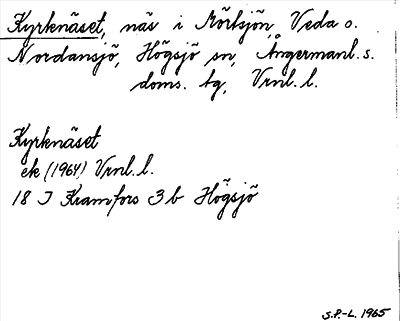 Kyrknäset, näs i Mörtsjön, Veda o.
Nordansjö, Högsjö sn, Ångermanl. s.
doms. tg, Vrnl. l.
Kyrknäset
ek (1964) Vrnl. l.
18 I Kramfors 3 b Högsjö
S.P.-L. 1965